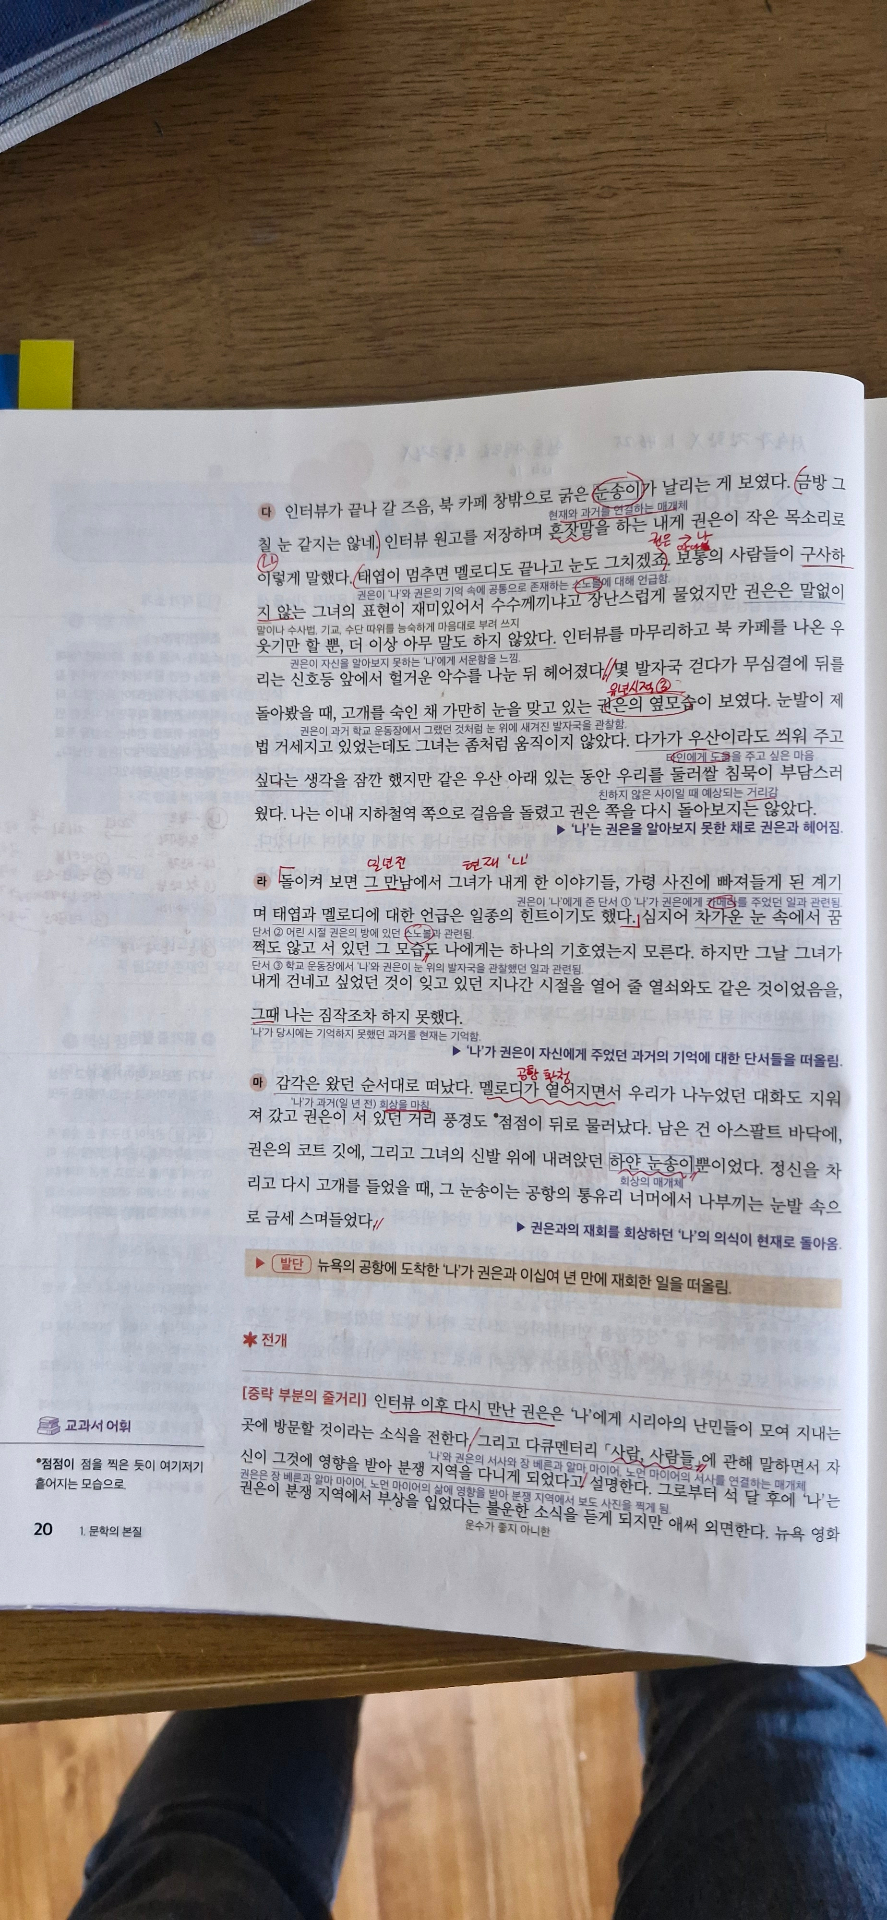 다 인터뷰가 끝나 갈 즈음, 북 카페 창밖으로 굵은 눈송이가 날리는 게 보였다. 금방 그
현재와 과거를 연결하는 매개체
칠 눈 같지는 않네. 인터뷰 원고를 저장하며 혼잣말을 하는 내게 권은이 작은 목소리로
나
권은
이렇게 말했다. 태엽이 멈추면 멜로디도 끝나고 눈도 그치겠죠. 보통의 사람들이 구사하
권은이 '나'와 권은의 기억 속에 공통으로 존재하는 스노볼에 대해 언급함.
지 않는 그녀의 표현이 재미있어서 수수께끼냐고 장난스럽게 물었지만 권은은 말없이
말이나 수사법, 기교, 수단 따위를 능숙하게 마음대로 부려 쓰지
웃기만 할 뿐, 더 이상 아무 말도 하지 않았다. 인터뷰를 마무리하고 북 카페를 나온 우
권은이 자신을 알아보지 못하는 '나'에게 서운함을 느낌.
리는 신호등 앞에서 헐거운 악수를 나눈 뒤 헤어졌다. 몇 발자국 걷다가 무심결에 뒤를
유년시절 ③
돌아봤을 때, 고개를 숙인 채 가만히 눈을 맞고 있는 권은의 옆모습이 보였다. 눈발이 제
권은이 과거 학교 운동장에서 그랬던 것처럼 눈 위에 새겨진 발자국을 관찰함.
법 거세지고 있었는데도 그녀는 좀처럼 움직이지 않았다. 다가가 우산이라도 씌워 주고
타인에게 도움을 주고 싶은 마음
싶다는 생각을 잠깐 했지만 같은 우산 아래 있는 동안 우리를 둘러쌀 침묵이 부담스러
친하지 않은 사이일 때 예상되는 거리감
웠다. 나는 이내 지하철역 쪽으로 걸음을 돌렸고 권은 쪽을 다시 돌아보지는 않았다.
▶ '나'는 권은을 알아보지 못한 채로 권은과 헤어짐.
일년전 현재 '나'
라 돌이켜 보면 그 만남에서 그녀가 내게 한 이야기들, 가령 사진에 빠져들게 된 계기
권은이 '나'에게 준 단서 ① '나'가 권은에게 카메라를 주었던 일과 관련됨.
며 태엽과 멜로디에 대한 언급은 일종의 힌트이기도 했다. 심지어 차가운 눈 속에서 꿈
단서 ② 어린 시절 권은의 방에 있던 스노볼과 관련됨.
쩍도 않고 서 있던 그 모습도 나에게는 하나의 기호였는지 모른다. 하지만 그날 그녀가
단서 ③ 학교 운동장에서 '나'와 권은이 눈 위의 발자국을 관찰했던 일과 관련됨.
내게 건네고 싶었던 것이 잊고 있던 지나간 시절을 열어 줄 열쇠와도 같은 것이었음을,
그때 나는 짐작조차 하지 못했다.
'나'가 당시에는 기억하지 못했던 과거를 현재는 기억함.
▶ '나'가 권은이 자신에게 주었던 과거의 기억에 대한 단서들을 떠올림.
공항
마 감각은 왔던 순서대로 떠났다. 멜로디가 옅어지면서 우리가 나누었던 대화도 지워
'나'가 과거(일 년 전) 회상을 마침
져 갔고 권은이 서 있던 거리 풍경도 *점점이 뒤로 물러났다. 남은 건 아스팔트 바닥에,
권은의 코트 깃에, 그리고 그녀의 신발 위에 내려앉던 하얀 눈송이뿐이었다. 정신을 차
회상의 매개체
리고 다시 고개를 들었을 때, 그 눈송이는 공항의 통유리 너머에서 나부끼는 눈발 속으
로 금세 스며들었다.
▶ 권은과의 재회를 회상하던 '나'의 의식이 현재로 돌아옴.
▶ 발단 뉴욕의 공항에 도착한 '나'가 권은과 이십여 년 만에 재회한 일을 떠올림.
전개
[중략 부분의 줄거리] 인터뷰 이후 다시 만난 권은은 '나'에게 시리아의 난민들이 모여 지내는
곳에 방문할 것이라는 소식을 전한다. 그리고 다큐멘터리 「사람, 사람들」에 관해 말하면서 자
'나'와 권은의 서사와 장 베른과 알마 마이어, 노먼 마이어의 서사를 연결하는 매개체
신이 그것에 영향을 받아 분쟁 지역을 다니게 되었다고 설명한다. 그로부터 석 달 후에 '나'는
권은은 장 베른과 알마 마이어, 노먼 마이어의 삶에 영향을 받아 분쟁 지역에서 보도 사진을 찍게 됨.
권은이 분쟁 지역에서 부상을 입었다는 불운한 소식을 듣게 되지만 애써 외면한다. 뉴욕 영화
운수가 좋지 아니한
교과서 어휘
*점점이 점을 찍은 듯이 여기저기
흩어지는 모습으로.
20 1. 문학의 본질